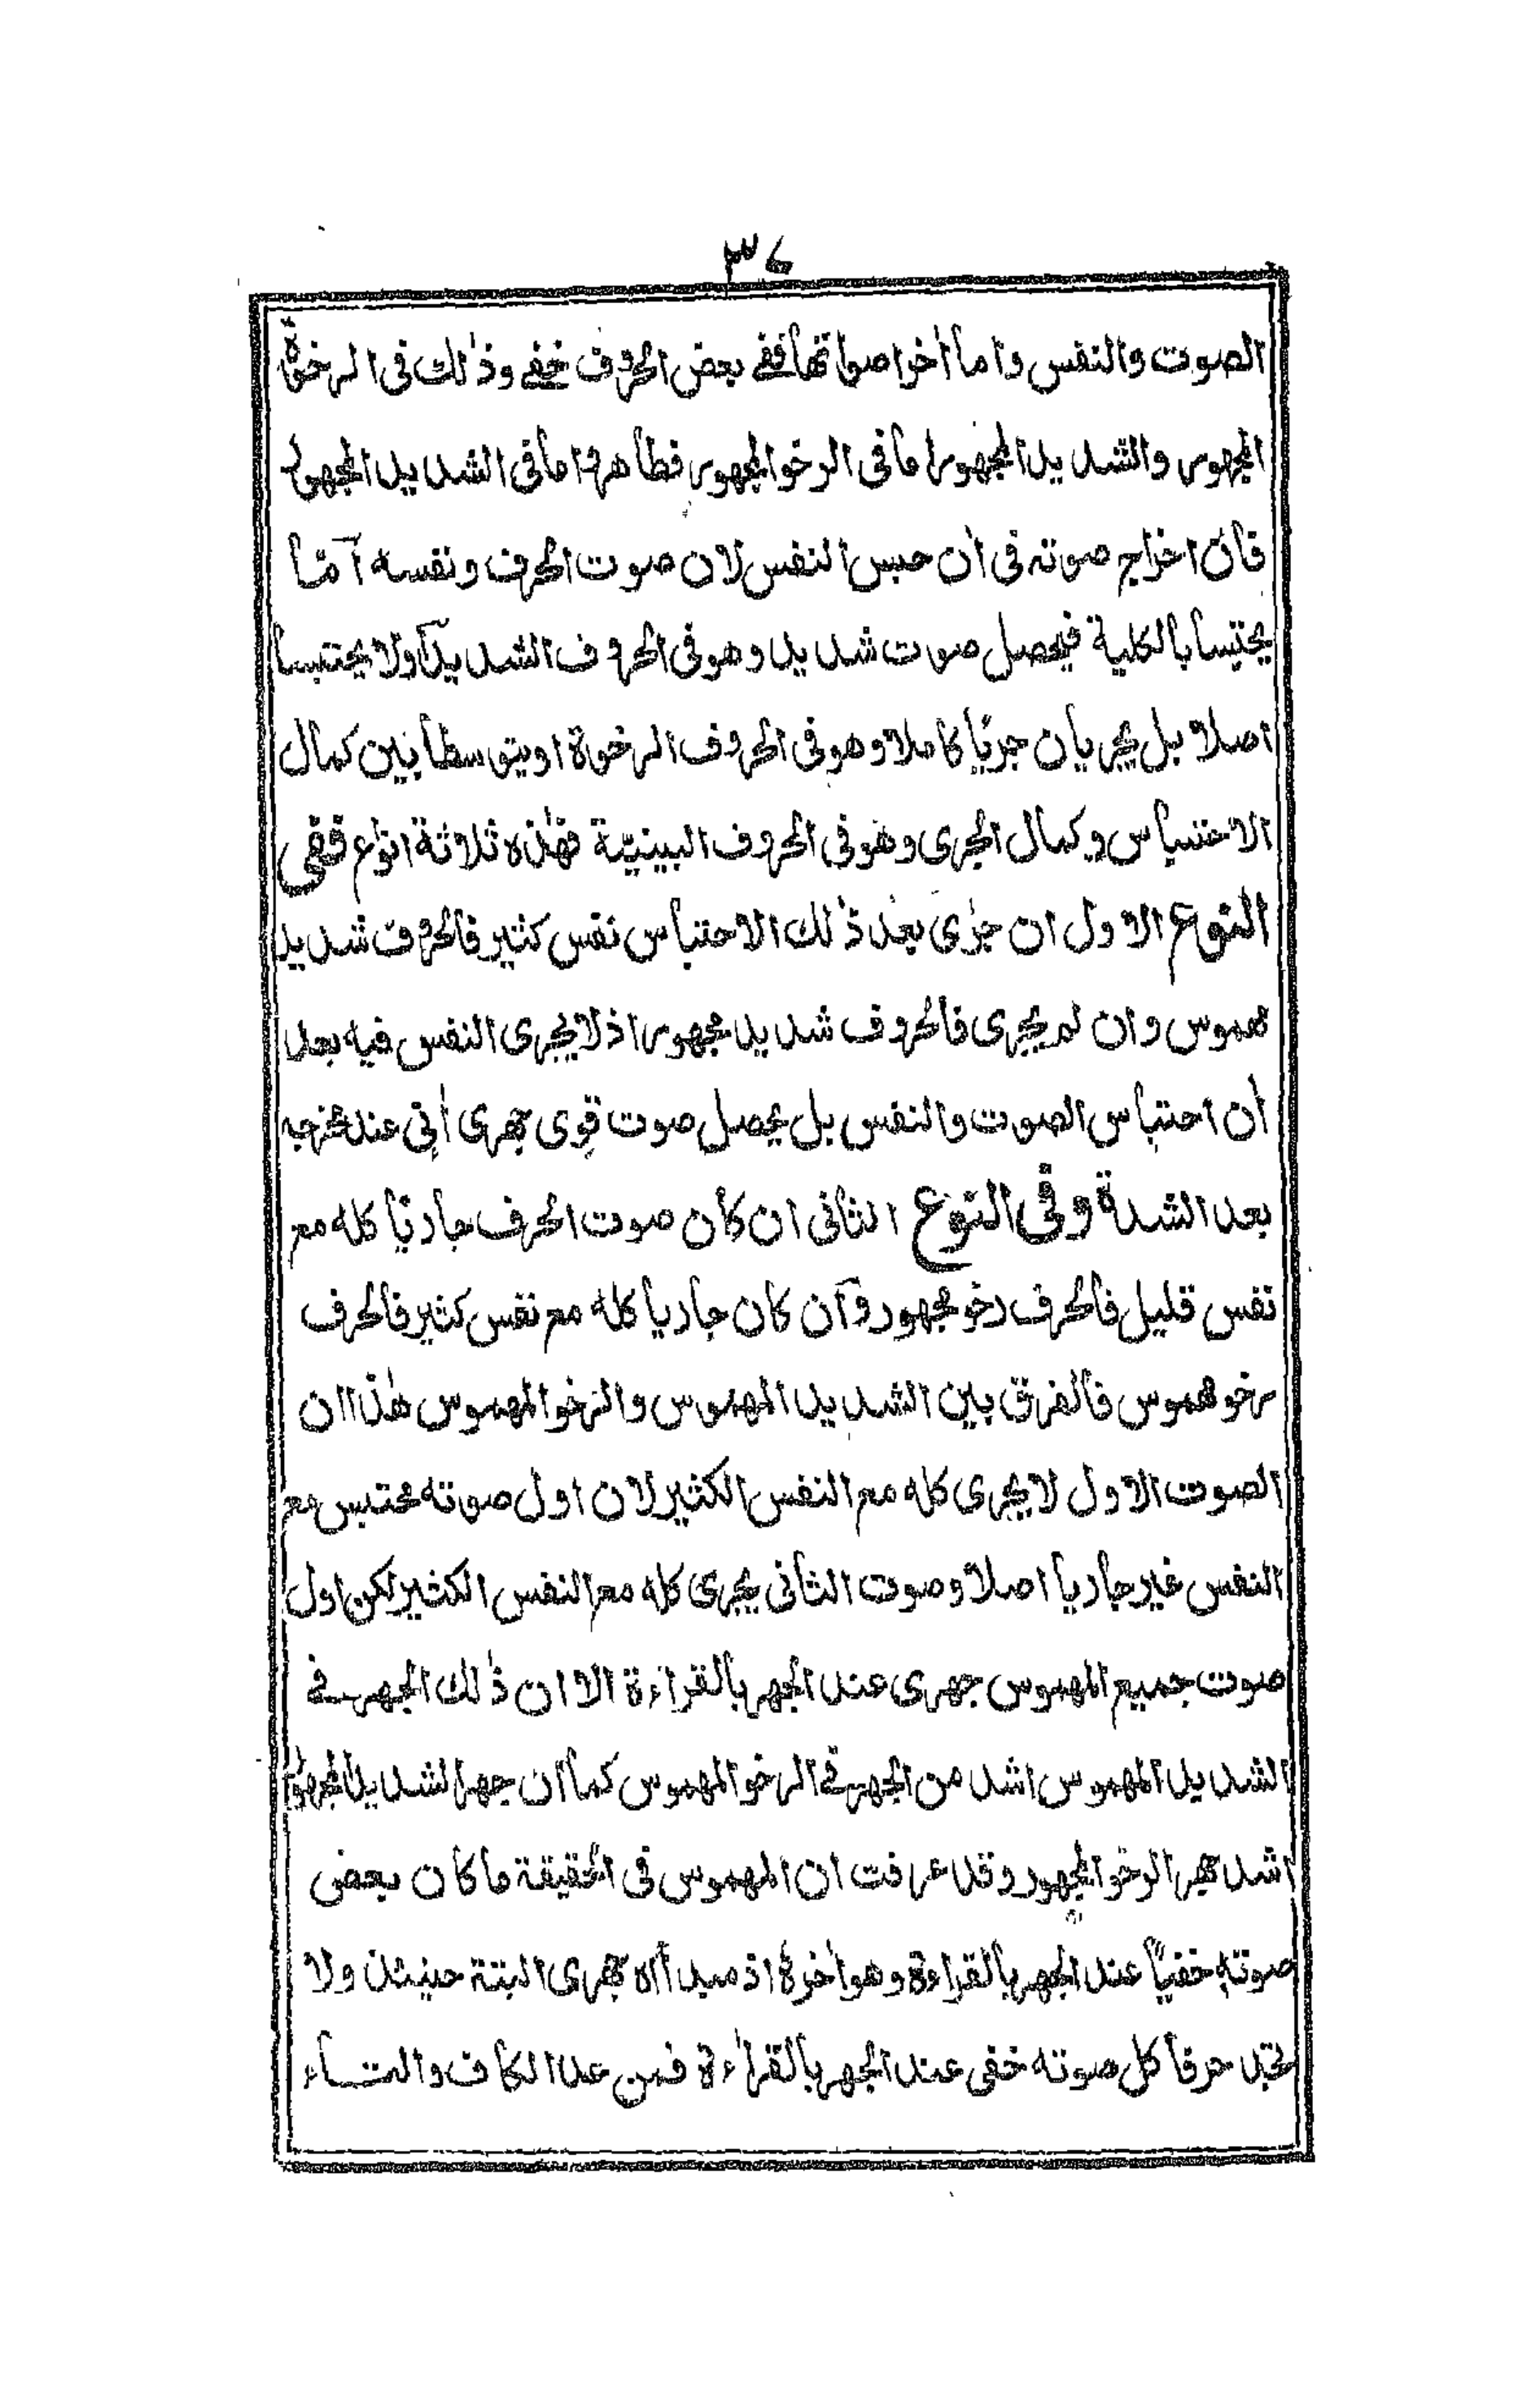 ٣٤
الصوت والنفس واما اخر اصواتها ففے بعض الحروف خفے وذٰلك فى الرخوة
المجهور والشديد المجهور اما فى الرخو المجهور فظاهر واما فى الشديد المجهور
فان اخراج صوته فى اٰن حبس النفس لان صوت الحرف ونفسه امّا
يحتبسا بالكلية فيحصل صوت شديد وهو فى الحروف الشديدة اولا يحتبسا
اصلا بل يجريان جريًا كاملا وهو فى الحروف الرخوة او يتوسطا بين كمال
الاحتباس وكمال الجرى وهو فى الحروف البينيّة فهٰذه ثلاثة انواع ففى
النوع الاول ان جرٰى بعد ذٰلك الاحتباس نفس كثير فالحروف شديد
مهموس وان لم يجرى فالحروف شديد مجهور اذ لا يجرى النفس فيه بعد
اٰن احتباس الصوت والنفس بل يحصل صوت قوى جهرى اٰنى عند مخرجه
بعد الشدة وفى النوع الثانى ان كان صوت الحرف جاريًا كله مع
نفس قليل فالحرف رخو مجهور وان كان جاريا كله مع نفس كثير فالحرف
رخو مهموس فالفرق بين الشديد المهموس والرخو المهموس هٰذا ان
الصوت الاول لا يجرى كله مع النفس الكثير لان اول صوته محتبس مع
النفس غير جاريا اصلا وصوت الثانى يجرى كله مع النفس الكثير لكن اول
صوت جميع المهموس جهرى عند الجهر بالقراءة الا ان ذٰلك الجهر فے
الشديد المهموس اشد من الجهر فے الرخو المهموس كما ان جهر الشديد المجهور
اشد جهر الرخو المجهور وقد عرفت ان المهموس فى الحقيقة ما كان بعض
صوته خفيًا عند الجهر بالقراءة وهو اٰخره اذ مبداه جهرى البتة حينئذ ولا
تجد حرفا كل صوته خفى عند الجهر بالقراءة فمن عد الكاف والتاء